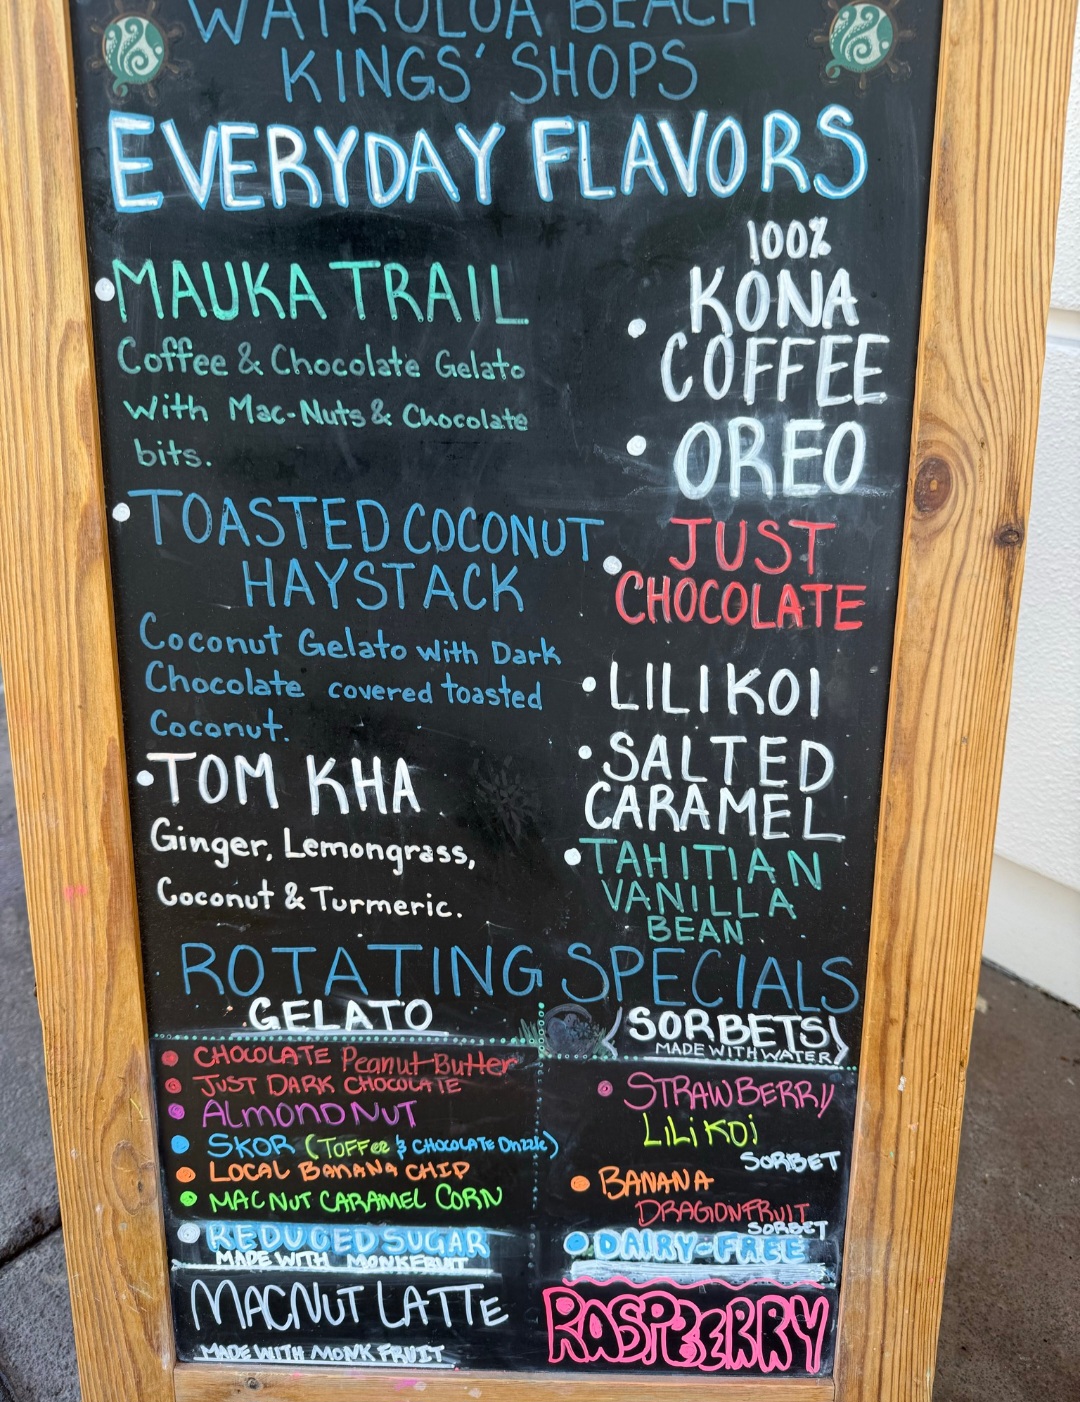 WAIKOLOA BEACH
KINGS' SHOPS
EVERYDAY FLAVORS
MAUKA TRAIL
Coffee & Chocolate Gelato
With Mac-Nuts & Chocolate
bits.
TOASTED COCONUT
HAYSTACK
Coconut Gelato with Dark
Chocolate covered toasted
Coconut.
TOM KHA
Ginger, Lemongrass,
Coconut & Turmeric.
100%
KONA
COFFEE
OREO
JUST
CHOCOLATE
LILIKOI
SALTED
CARAMEL
TAHITIAN
VANILLA
BEAN
ROTATING SPECIALS
GELATO
CHOCOLATE Peanut Butter
JUST DARK CHOCOLATE
ALMOND NUT
SKOR (TOFFEE & CHOCOLATE Drizzle)
LOCAL BANANA CHIP
MACNUT CARAMEL CORN
REDUCED SUGAR
MADE WITH MONKFRUIT
MACNUT LATTE
MADE WITH MONK FRUIT
(SORBETS)
MADE WITH WATER
STRAWBERRY
LILIKOI
SORBET
BANANA
DRAGONFRUIT
SORBET
DAIRY-FREE
RASPBERRY